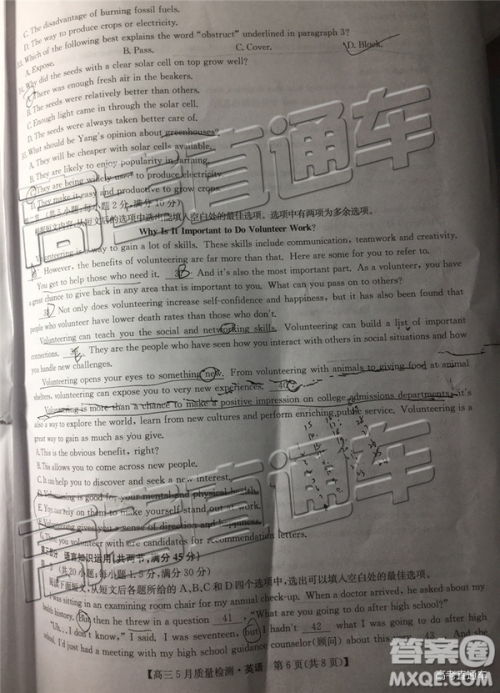 C. The disadvantage of burning fossil fuels.
D. The way to produce crops or electricity.
Which of the following best explains the word "obstruct" underlined in paragraph 3?
A. Expose. B. Pass. C. Cover. D. Block.
Why did the seeds with a clear solar cell on top grow well?
There was enough fresh air in the beakers.
B. The seeds were relatively better than others.
C. Enough light came in through the solar cell.
D. The seeds were always taken better care of.
What should be Yang's opinion about greenhouses?
A. They will be cheaper with solar cells available.
B. They are likely to enjoy popularity in farming.
C. They are being widely used to produce electricity.
D. They make it easy and productive to grow crops.
(共5小题;每小题2分,满分10分)
根据短文内容,从短文后的选项中选出能填入空白处的最佳选项。选项中有两项为多余选项。
Why Is It Important to Do Volunteer Work?
Volunteering is a way to gain a lot of skills. These skills include communication, teamwork and creativity.
However, the benefits of volunteering are far more than that. Here are some for you to refer to.
You get to help those who need it. And it's also the most important part. As a volunteer, you have
a great chance to give back in any area that is important to you. What can you pass on to others?
Not only does volunteering increase self-confidence and happiness, but it has also been found that
people who volunteer have lower death rates than those who don't.
Volunteering can teach you the social and networking skills. Volunteering can build a list of important
connections. They are the people who have seen how you interact with others in social situations and how
you handle new challenges.
Volunteering opens your eyes to something new. From volunteering with animals to giving food at animal
shelter, volunteering can expose you to very new experiences.
Volunteering is more than a chance to make a positive impression on college admissions departments; it's
also a way to explore the world, learn from new cultures and perform enriching public service. Volunteering is a
great way to gain as much as you give.
A. This is the obvious benefit, right?
B. This allows you to come across new people.
C. It can help you to discover and seek a new interest.
D. Volunteering is good for your mental and physical health.
E. You can rely on them to make yourself stand out at work.
F. Volunteering gives you a sense of direction and happiness.
G. Those you volunteer with are candidates for recommendation letters.
语言知识运用(共两节,满分45分)
(共20小题;每小题1.5分,满分30分)
阅读下面短文,从短文后各题所给的A、B、C和D四个选项中,选出可以填入空白处的最佳选项。
I was sitting in an examining room chair for my annual check-up. When a doctor arrived, he asked about my
health history. But then he threw in a question 41 "What are you going to do after high school?"
"Uh...I don't know," I said. I was seventeen, but I hadn't 42 what I was going to do after high
school. I'd just had a meeting with my high school guidance counselor(顾问) about this 43
【高三5月质量检测·英语 第6页(共8页)】
高考直通车
高考直通车
高考直通车
答案圈
MXQE.COM